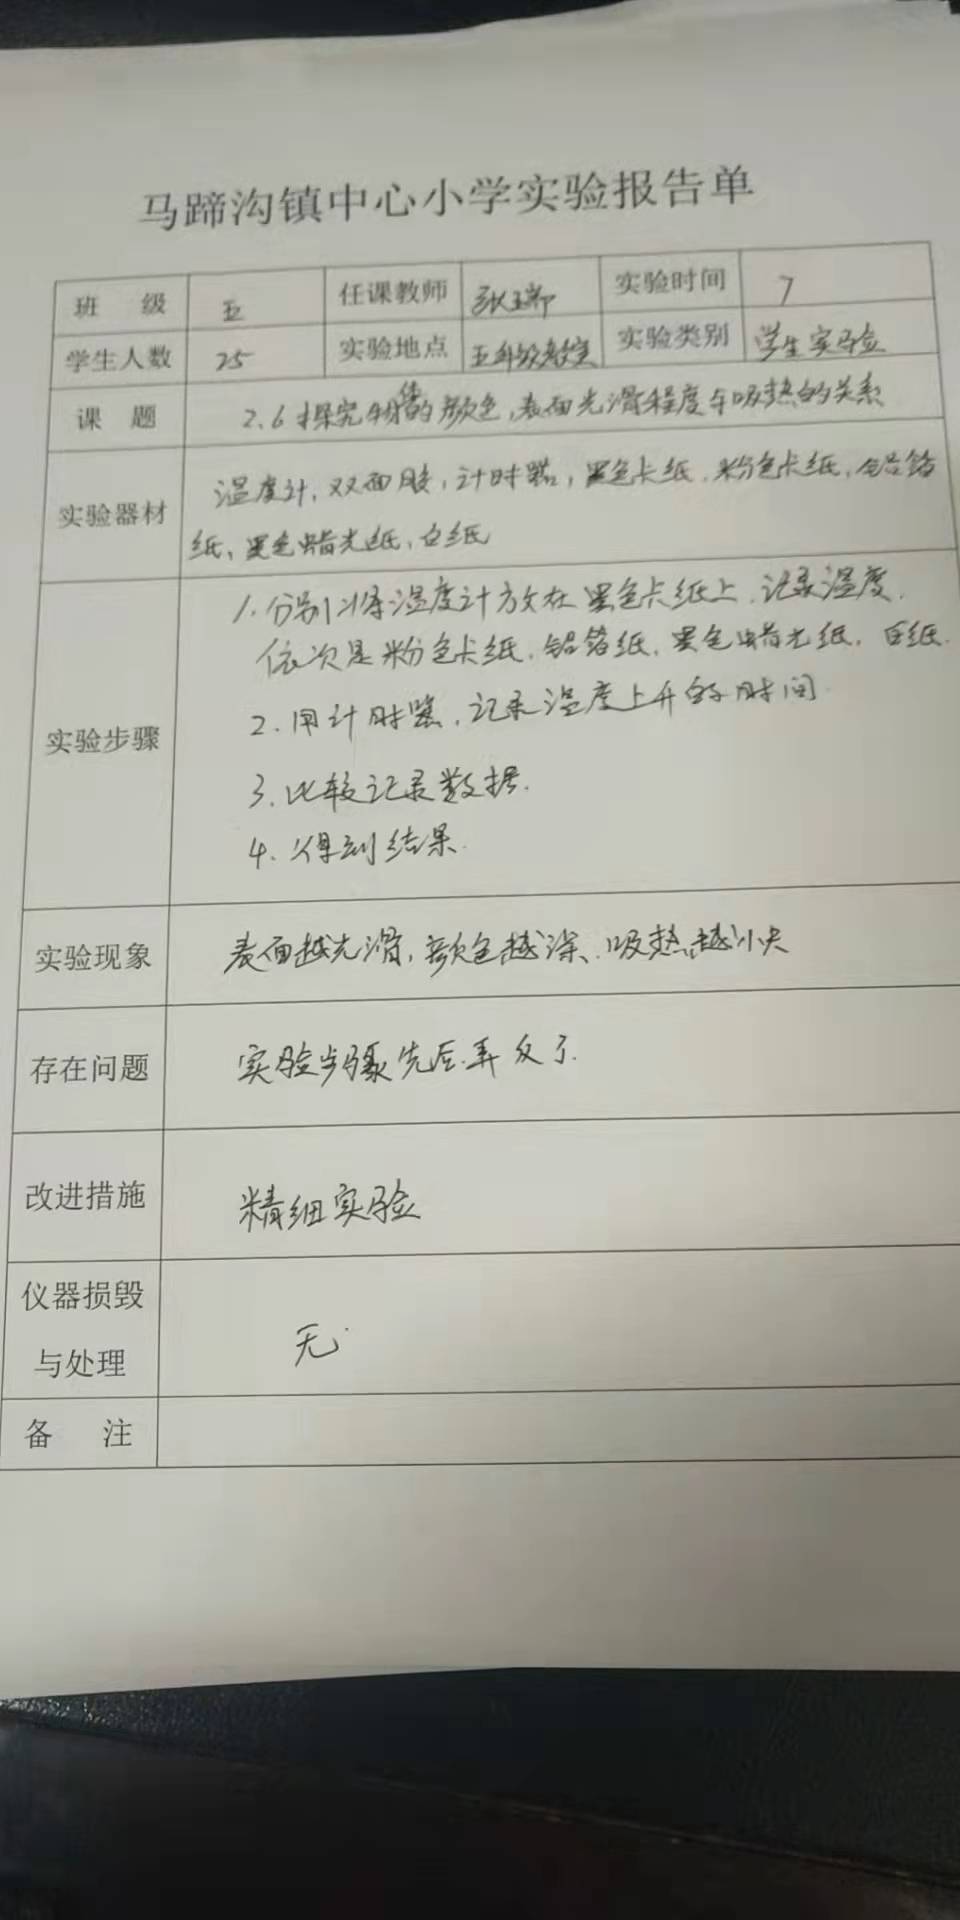 马蹄沟镇中心小学实验报告单
班 级 五 任课教师 张瑞 实验时间 7
学生人数 25 实验地点 五年级教室 实验类别 学生实验
课 题 2.6探究物体的颜色,表面光滑程度与吸热的关系
实验器材 温度计,双面胶,计时器,黑色卡纸,粉色卡纸,铝箔
纸、黑色蜡光纸、白纸
实验步骤 1.分别将温度计放在黑色卡纸上,记录温度,
依次是粉色卡纸,铝箔纸,黑色蜡光纸,白纸.
2.用计时器,记录温度上升的时间.
3.比较记录数据.
4.得到结果.
实验现象 表面越光滑,颜色越深、吸热越快
存在问题 实验步骤先后弄反了.
改进措施 精细实验
仪器损毁
与处理 无
备 注